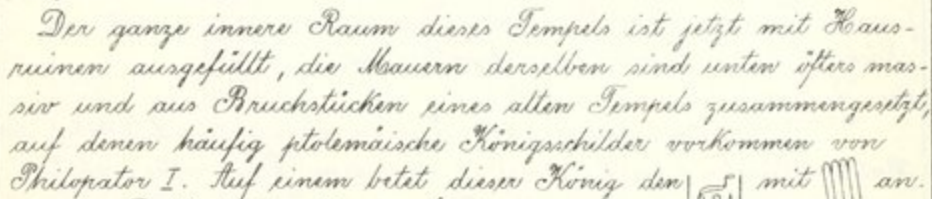 Der ganze innere Raum dieses Tempels ist jetzt mit Haus-
ruinen ausgefüllt, die Mauern derselben sind unten öfters mas-
siv und aus Bruchstücken eines alten Tempels zusammengesetzt,
auf denen häufig ptolemäische Königsschilder vorkommen von
Philopator I. Auf einem betet dieser König den mit an.